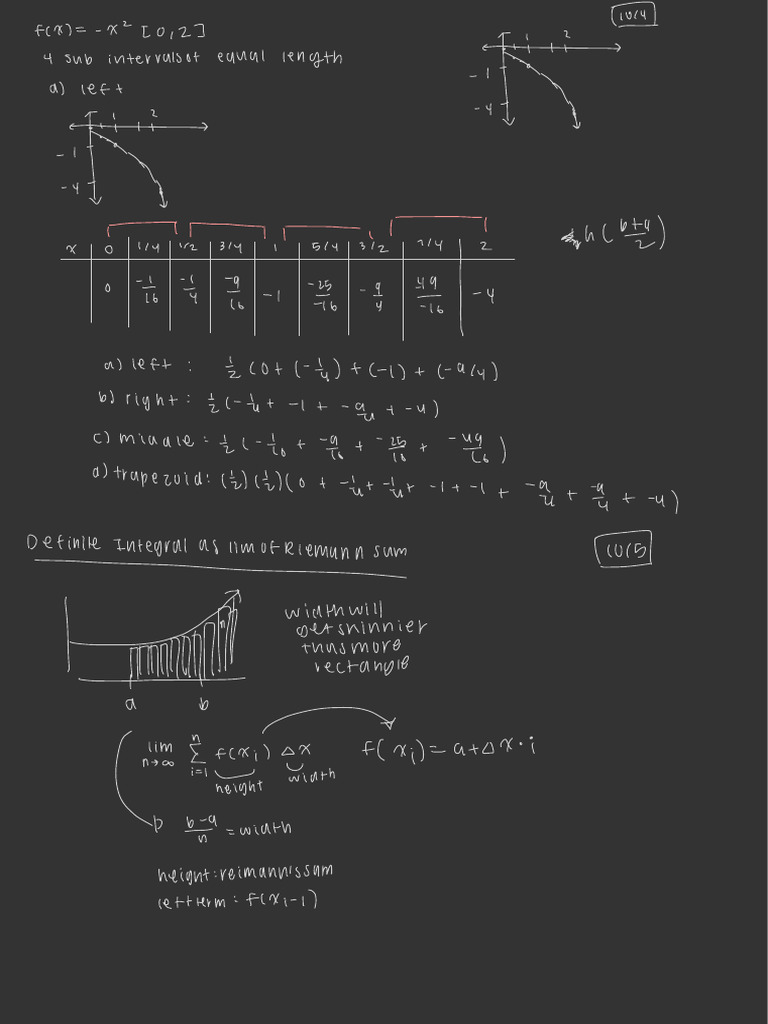 10/4
f(x) = -x² [0,2]
4 sub intervals of equal length
a) left
1 2
-1
-4
1 2
-1
-4
x 0 1/4 1/2 3/4 1 5/4 3/2 7/4 2
0 -1/16 -1/4 -9/16 -1 -25/-16 -9/4 49/-16 -4
h((b+a)/2)
a) left : ½(0+(-¼)+(-1)+(-9/4)
b) right : ½(-¼ + -1 + -9/4 + -4)
c) middle : ½(-1/16 + -9/16 + -25/16 + -49/16)
d) trapezoid: (½)(½)(0 + -¼ + -¼ + -1 + -1 + -9/4 + -9/4 + -4)
10/5
Definite Integral as lim of Riemann sum
width will
get skinnier
thus more
rectangle
a b
lim n→∞ Σ i=1 n f(xi) Δx f(xi) = a+Δx·i
height width
b-a/n = width
height: reimann's sum
left term = f(xi-1)